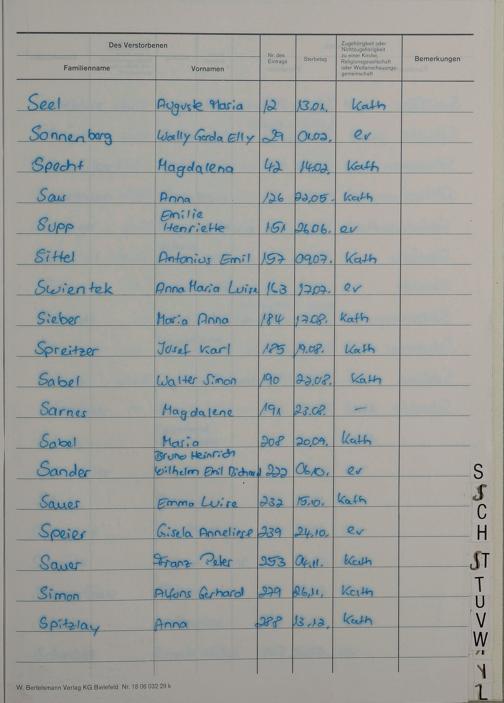 Des Verstorbenen
Familienname Vornamen Nr. des Eintrags Sterbetag Zugehörigkeit oder Nichtzugehörigkeit zu einer Kirche, Religionsgesellschaft oder Weltanschauungsgemeinschaft Bemerkungen
Seel Auguste Maria 12 13.01. Kath
Sonnenberg Wally Gerda Elly 29 01.02. ev
Specht Magdalena 42 14.02. Kath
Anna 126 22.05. Kath
Supp Emilie Henriette 151 26.06. ev
Sittel Antonius Emil 157 09.07. Kath
Swientek Anna Maria Luise 163 17.07. ev
Sieber Maria Anna 184 17.08. Kath
Spreitzer Josef Karl 185 19.08. Kath
Sabel Walter Simon 190 22.08. Kath
Sarnes Magdalene 191 23.08. —
Sabel Maria 208 20.09. Kath
Sander Bruno Heinrich Wilhelm Emil Richard 222 06.10. ev
Sauer Emma Luise 232 15.10. Kath
Speier Gisela Anneliese 239 24.10. ev
Sauer Franz Peter 253 04.11. Kath
Simon Alfons Gerhard 279 26.11. Kath
Spitzlay Anna 288 13.12. Kath
W. Bertelsmann Verlag KG Bielefeld Nr. 18 06 032 29 k
S
S
C
H
ST
T
U
V
W
Y
Z